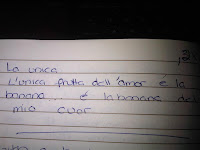 La unica.
L'unica frutta dell'amor é la
banana... é la banana del
mio cuor